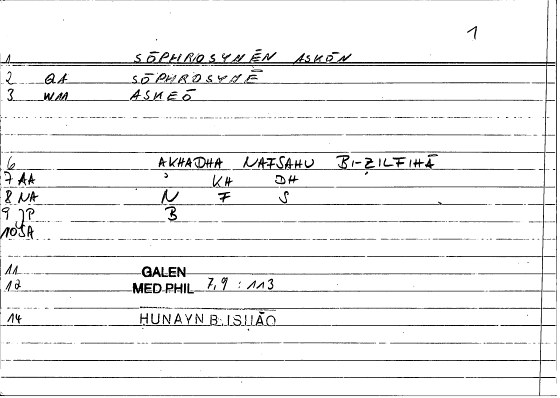 1
1 SŌPHROSYNĒN ASKŌN
2 QA SŌPHROSYNĒ
3 WM ASKEŌ
6 AKHADHA NAFSAHU BI-ẒILFIHĀ
7 AA ʾ KH DH
8 NA N F S
9 JP B
10 SA
11 GALEN
12 MED PHIL 7,9 : 113
14 HUNAYN B. ISḤĀQ